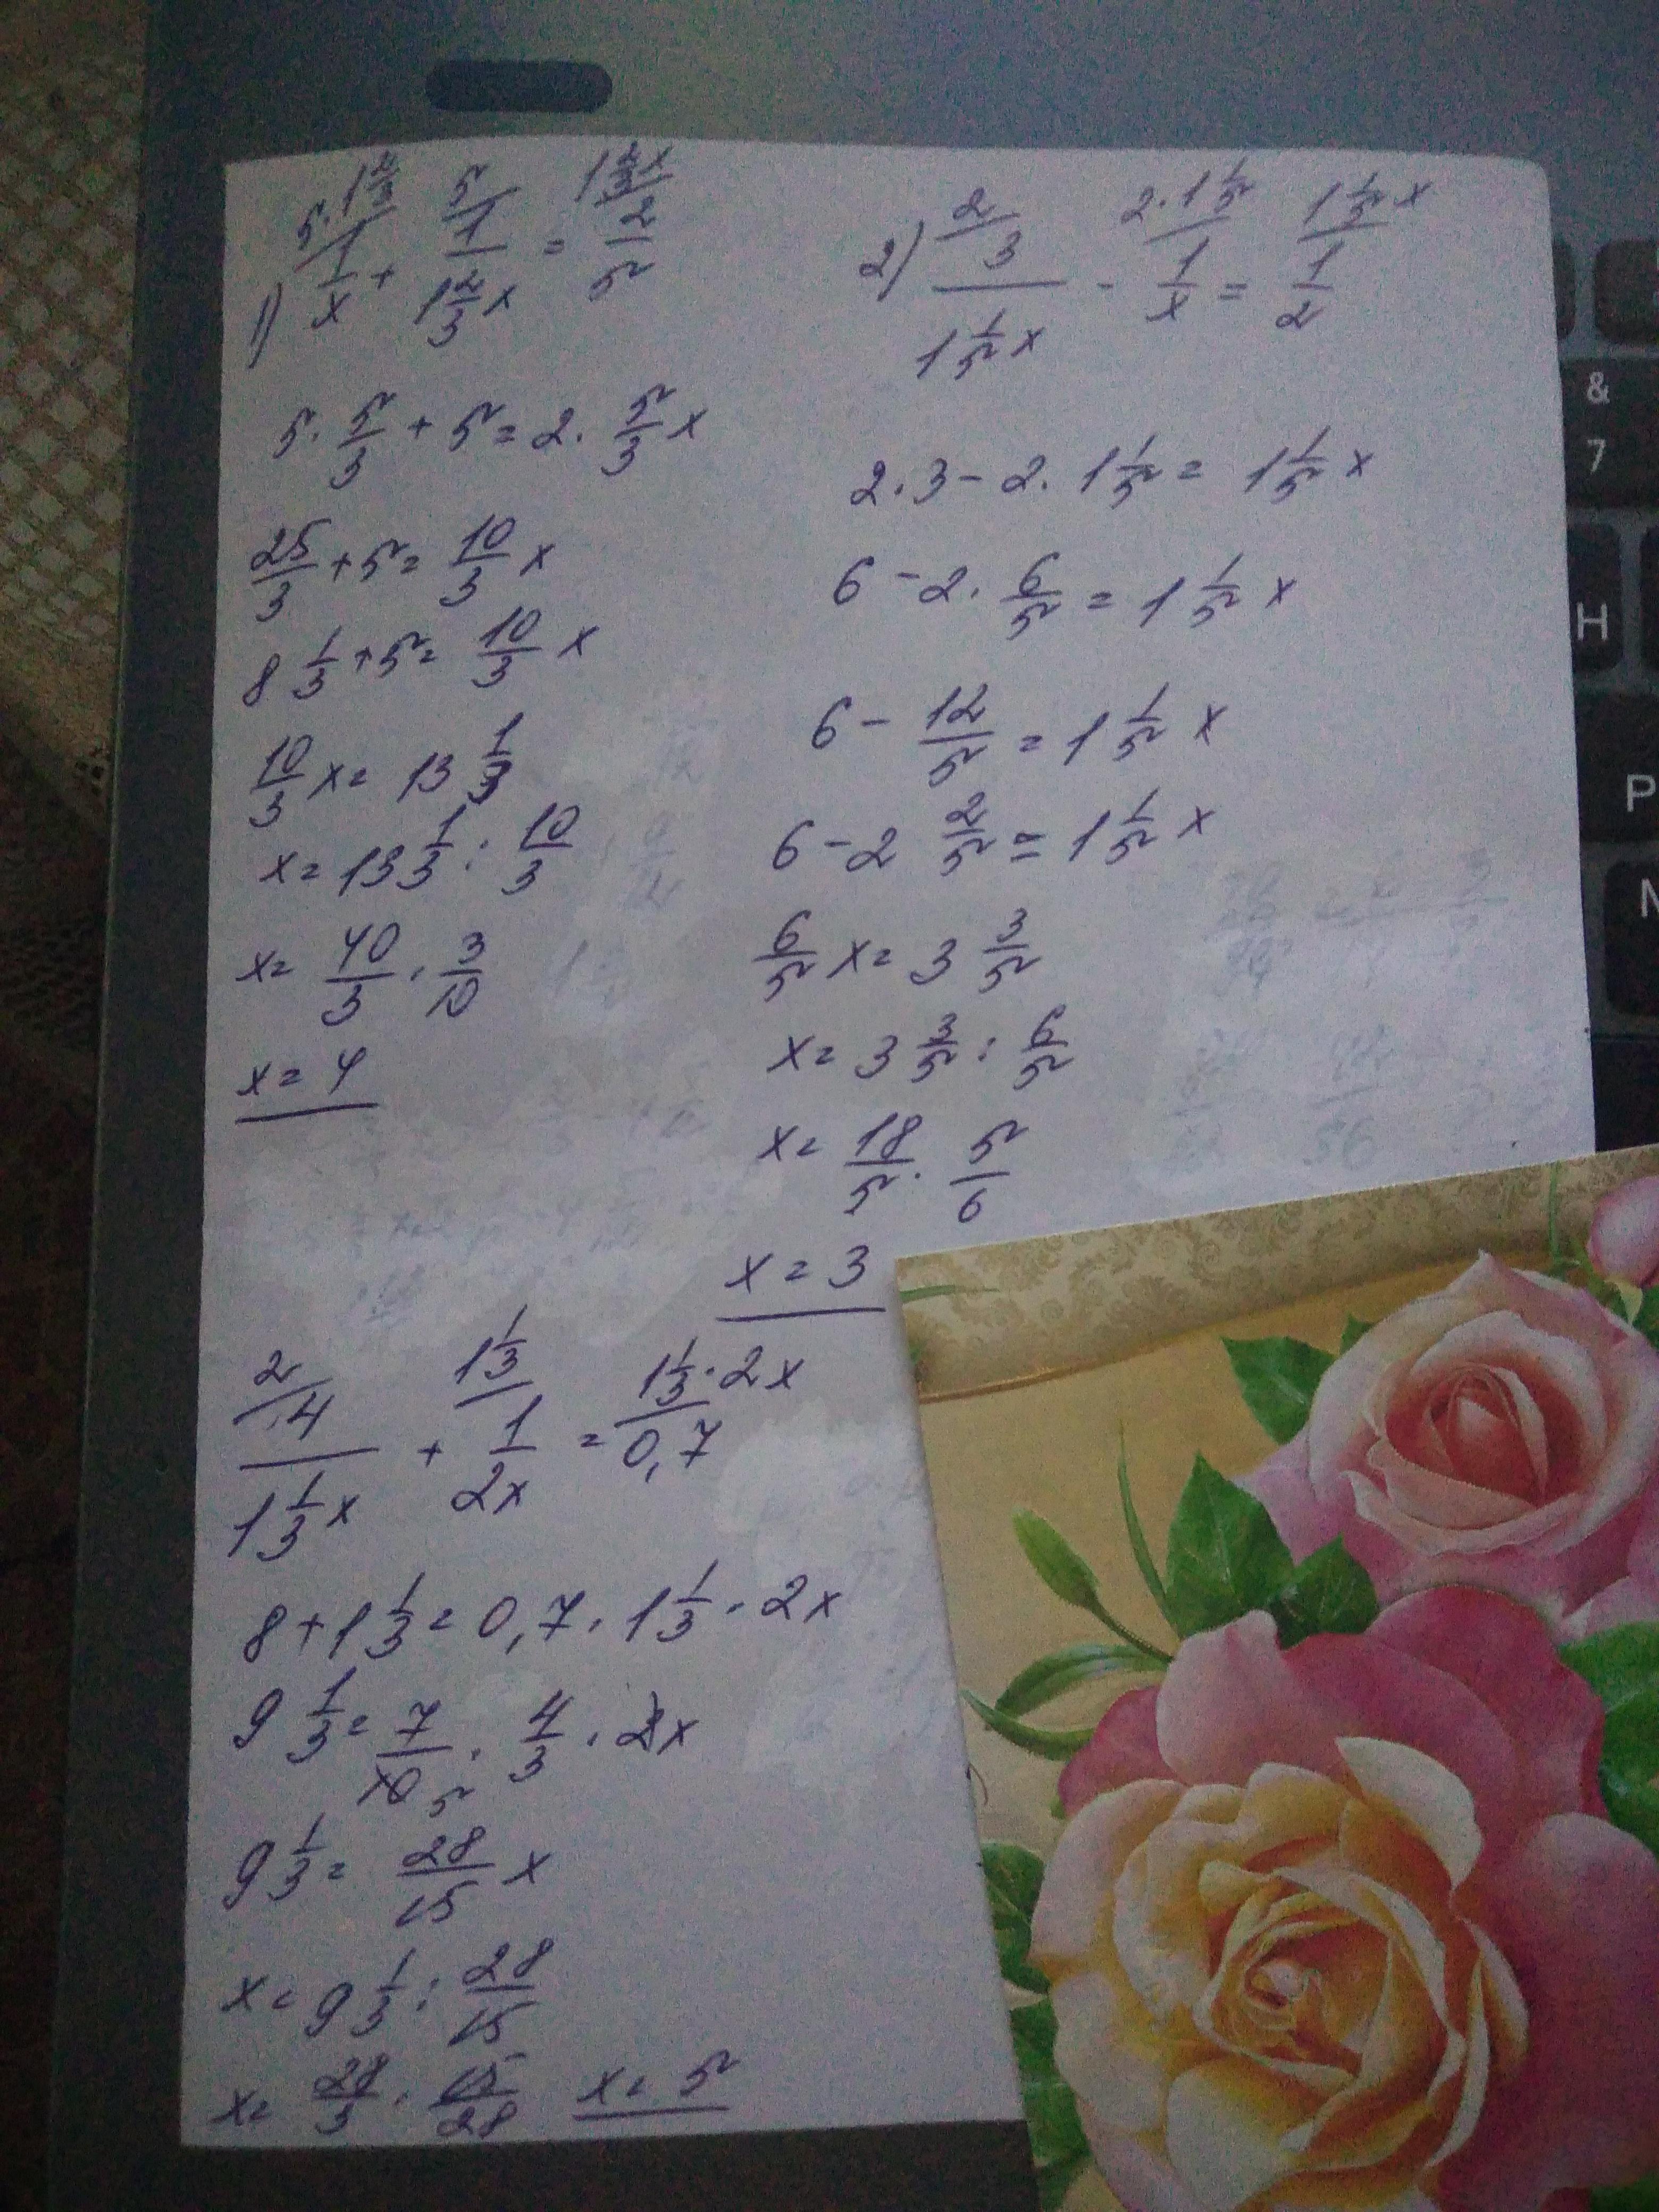 1) 5·1 2/3 / 1/x + 5 / 1/(1 2/3 x) = 1 2/3 x / 2/5
5 · 5/3 + 5 = 2 · 5/3 x
25/3 + 5 = 10/3 x
8 1/3 + 5 = 10/3 x
10/3 x = 13 1/3
x = 13 1/3 : 10/3
x = 40/3 · 3/10
x = 4
2) 2 / 3/(1 1/5 x) - 2·1 1/5 / 1/x = 1 1/5 x / 1/2
2 · 3 - 2 · 1 1/5 = 1 1/5 x
6 - 2 · 6/5 = 1 1/5 x
6 - 12/5 = 1 1/5 x
6 - 2 2/5 = 1 1/5 x
6/5 x = 3 3/5
x = 3 3/5 : 6/5
x = 18/5 · 5/6
x = 3
2 / 4/(1 1/3 x) + 1 1/3 / 1/(2x) = 1 1/3 · 2x / 0,7
8 + 1 1/3 = 0,7 · 1 1/3 · 2x
9 1/3 = 7/10 5 · 4/3 · 2x
9 1/3 = 28/15 x
x = 9 1/3 : 28/15
x = 28/3 · 15/28 x = 5
&
7
H
P